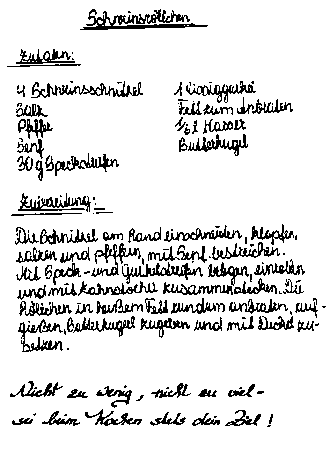 Schweinsröllchen
Zutaten:
4 Schweinsschnitzel
Salz
Pfeffer
Senf
30 g Speckstreifen
1 Essiggurkerl
Fett zum Anbraten
1/8 l Wasser
Butterkugel
Zubereitung:
Die Schnitzel am Rand einschneiden, klopfen,
salzen und pfeffern, mit Senf bestreichen.
Mit Speck- und Gurkelstreifen belegen, einrollen
und mit Zahnstocher zusammenstecken. Die
Röllchen in heißem Fett rundum anbraten, auf-
gießen, Butterkugel zugeben und mit Deckel zu-
decken.
Nicht zu wenig, nicht zu viel -
sei beim Kochen stets dein Ziel !